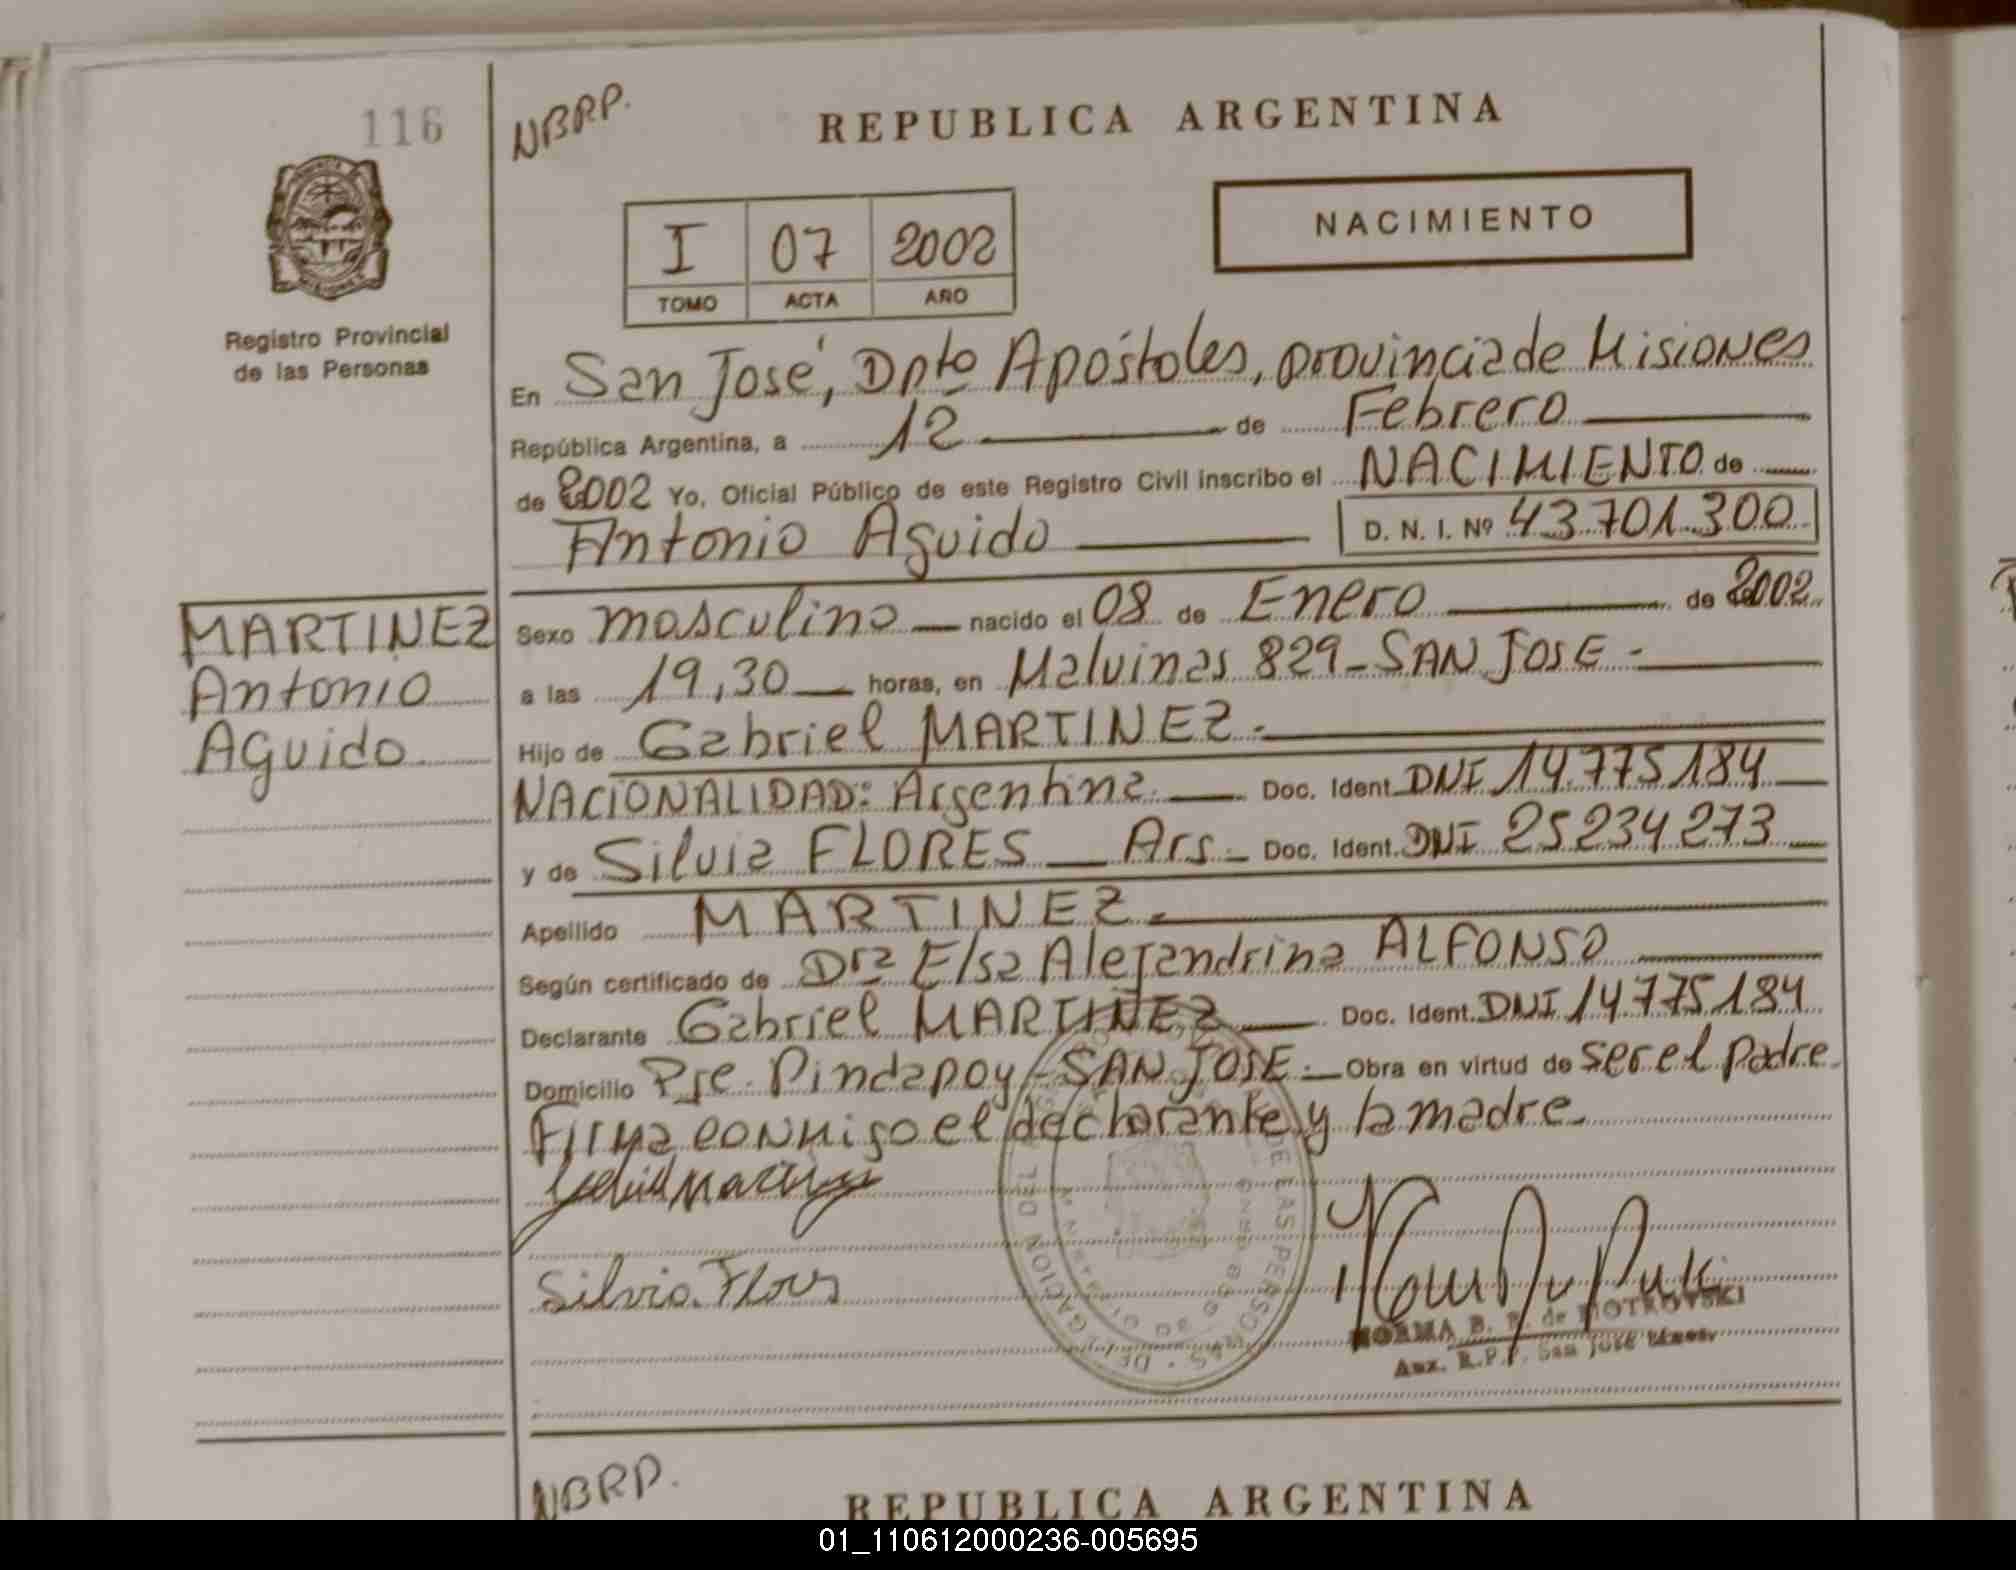 116
NBRP.
REPUBLICA ARGENTINA
NACIMIENTO
I 07 2002
TOMO ACTA AÑO
Registro Provincial
de las Personas
En San José, Dpto Apóstoles, provincia de Misiones
República Argentina, a 12 de Febrero
de 2002 Yo, Oficial Público de este Registro Civil inscribo el NACIMIENTO de
Antonio Aguido D. N. I. Nº 43.701.300
MARTINEZ
Antonio
Aguido
Sexo masculino nacido el 08 de Enero de 2002
a las 19,30 horas, en Malvinas 829 - SAN JOSE -
Hijo de Gabriel MARTINEZ.-
NACIONALIDAD: Argentina. Doc. Ident. DNI 14.775.184
y de Silvia FLORES Arg. Doc. Ident. DNI 25234273
Apellido MARTINEZ.
Según certificado de Dra Elsa Alejandrina ALFONSO
Declarante Gabriel MARTINEZ Doc. Ident. DNI 14775184
Domicilio Pje. Pindapoy - SAN JOSE. Obra en virtud de ser el padre.
Firma conmigo el declarante y la madre.
Silvia Flores
NORMA B. P. de PIOTROVSKI
Aux. R.P.P. San José Mnes.
NBRP.
REPUBLICA ARGENTINA
01_110612000236-005695